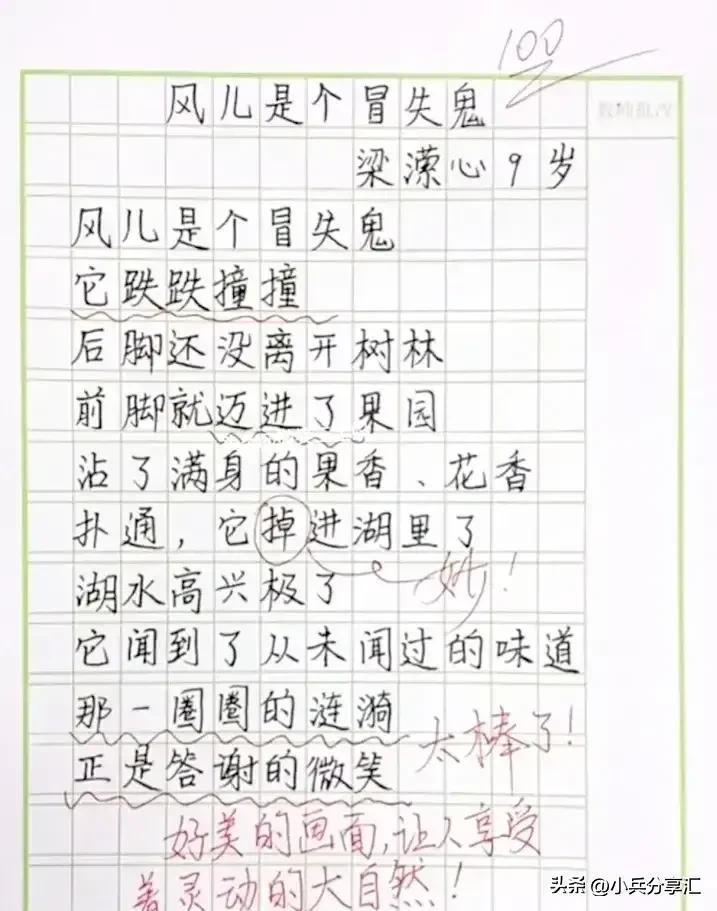 100
风儿是个冒失鬼
梁潆心9岁
风儿是个冒失鬼
它跌跌撞撞
后脚还没离开树林
前脚就迈进了果园
沾了满身的果香、花香
扑通,它掉进湖里了
妙!
湖水高兴极了
它闻到了从未闻过的味道
那一圈圈的涟漪
太棒了!
正是答谢的微笑
好美的画面,让人享受
着灵动的大自然!
头条 @小兵分享汇